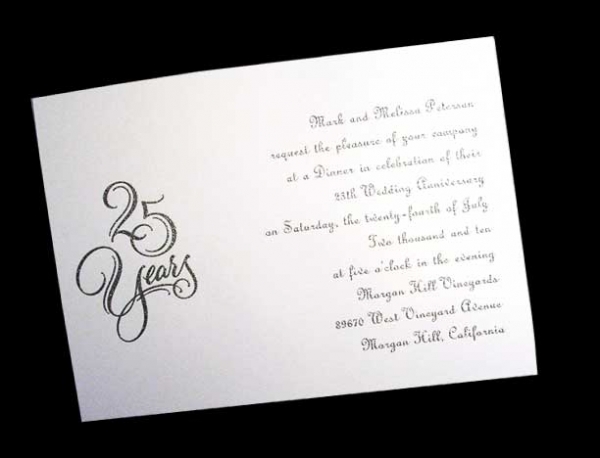 25
Years
Mark and Melissa Peterson
request the pleasure of your company
at a Dinner in celebration of their
25th Wedding Anniversary
on Saturday, the twenty-fourth of July
Two thousand and ten
at five o'clock in the evening
Morgan Hill Vineyards
89670 West Vineyard Avenue
Morgan Hill, California